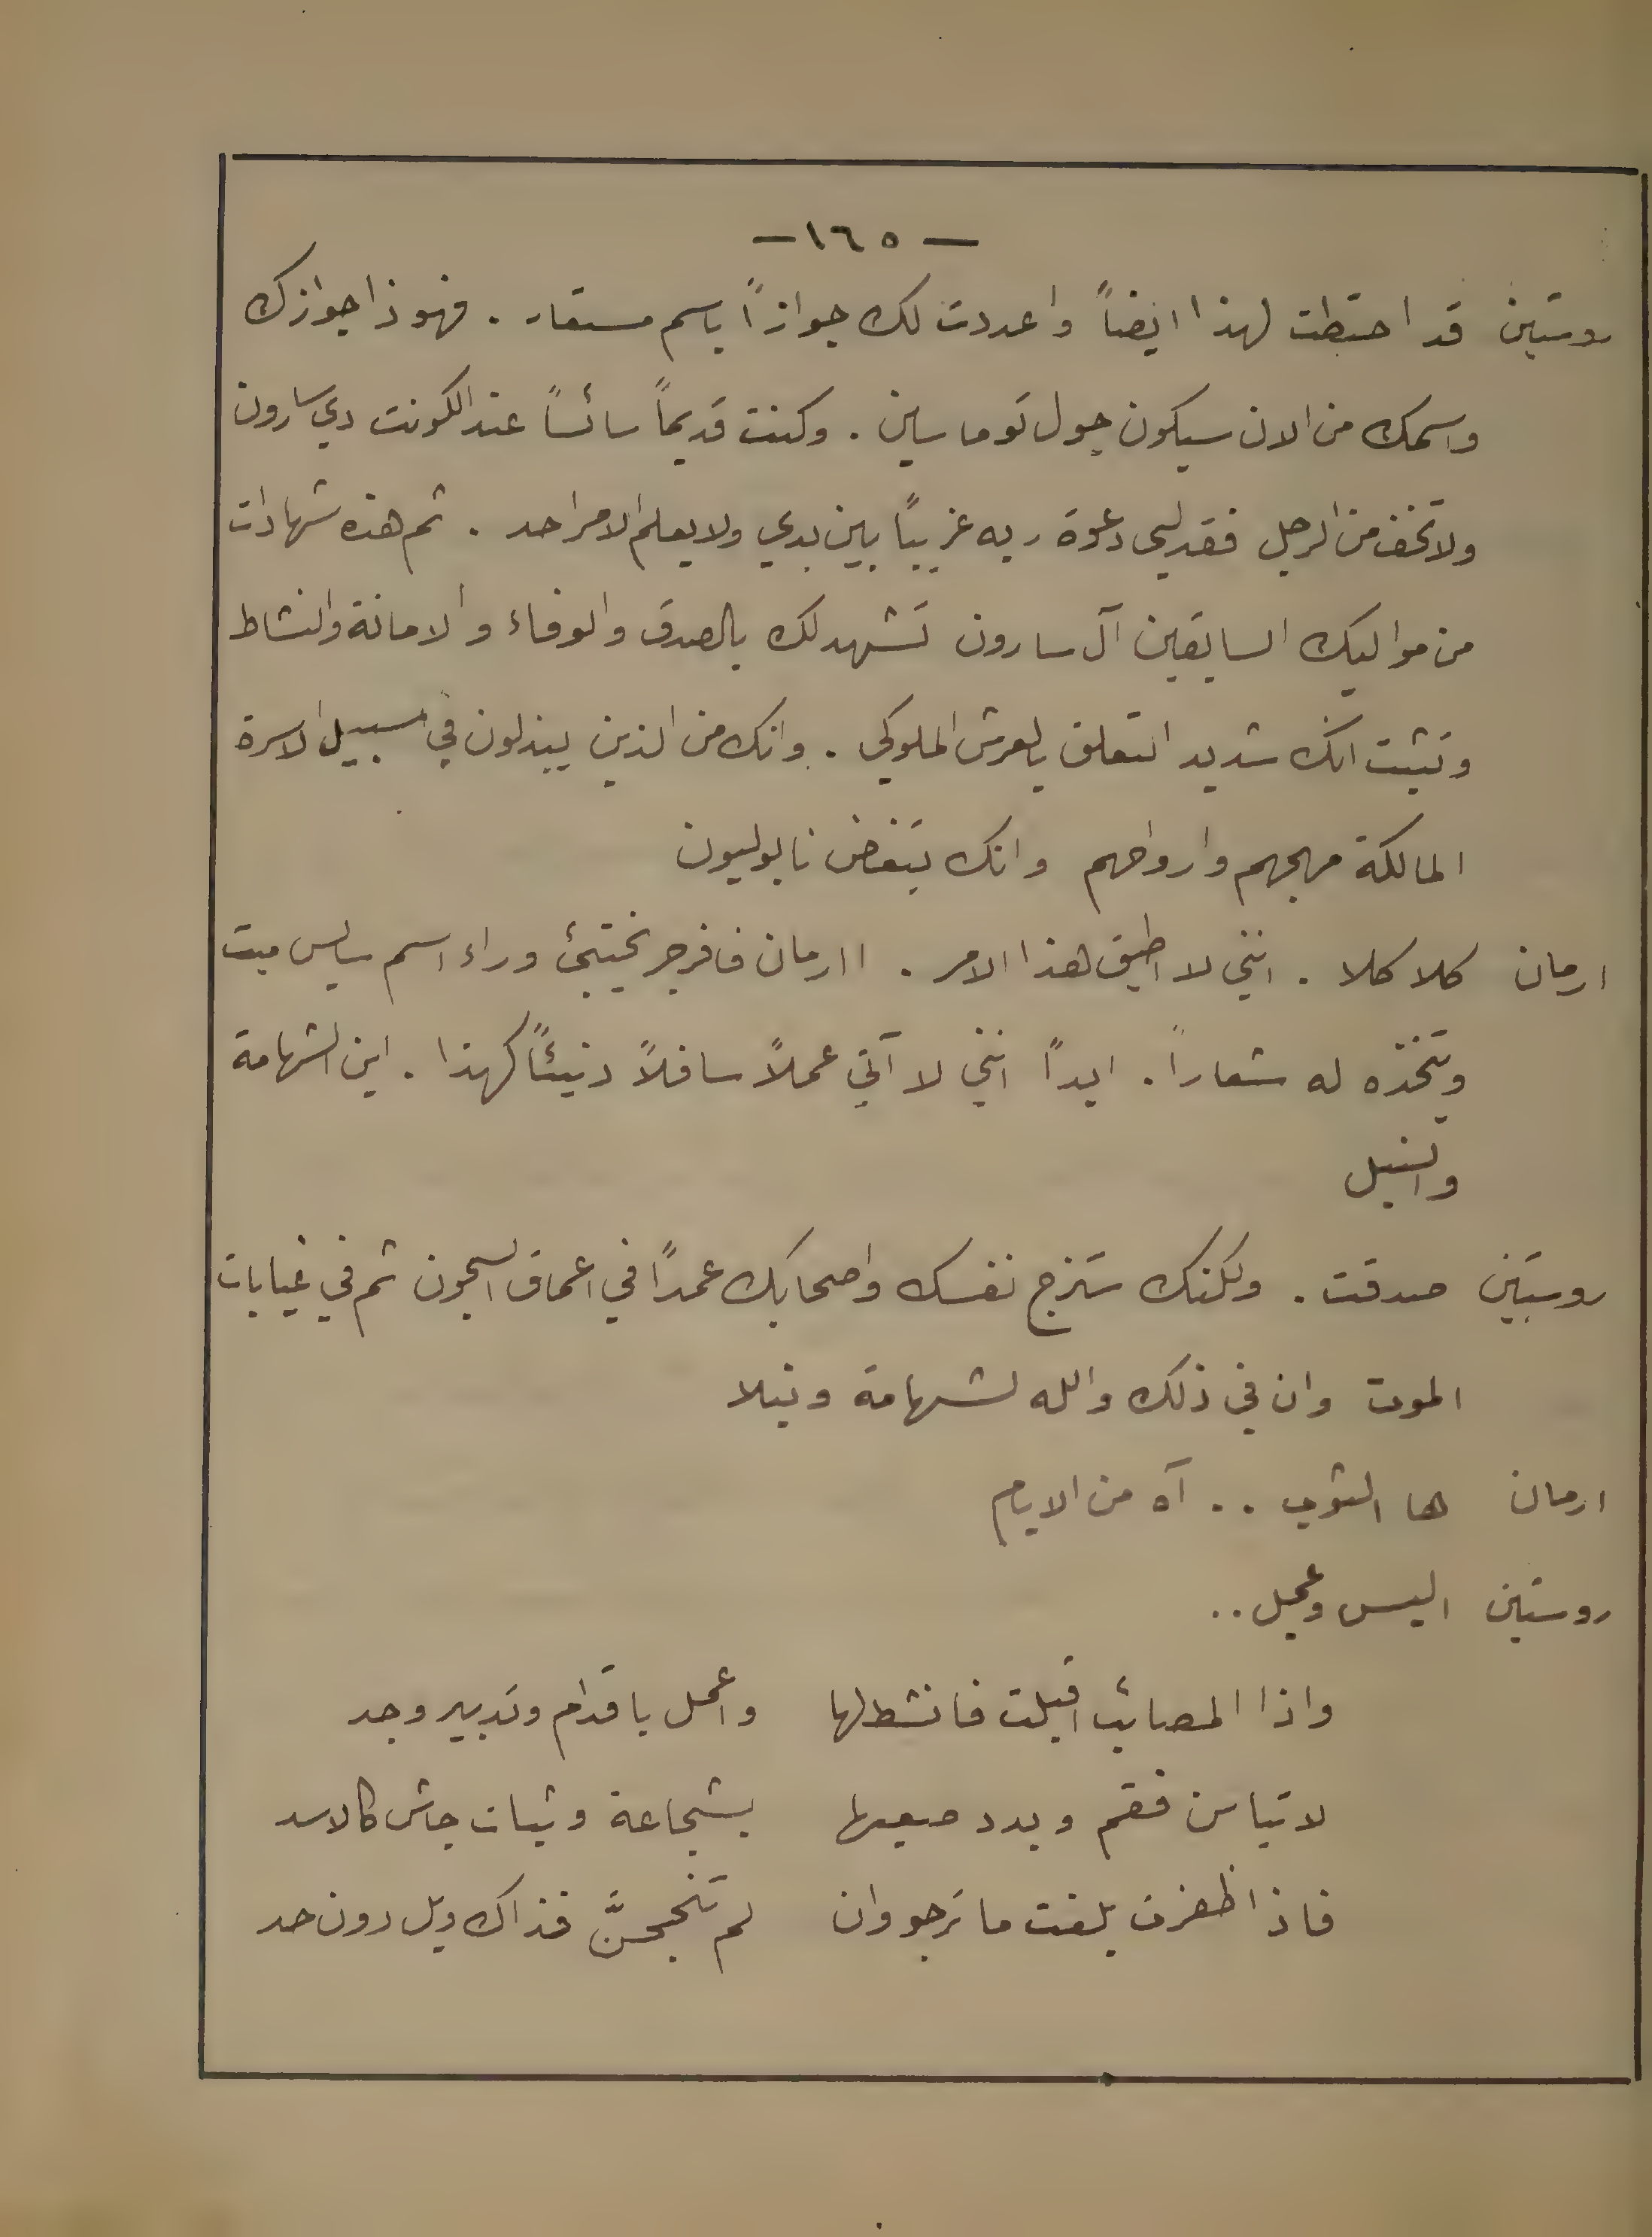 — ١٦٥ —
روستين قد احتطت لهذا ايضاً واعددت لك جوازاً باسم مستعار . فهوذا جوازك
واسمك من الان سيكون جول توماسين . وكنت قديماً سائساً عند الكونت دي سارون
ولا تخف من الرجل فقد لبى دعوة ربه غريباً بين يدي ولا يعلم الامر احد . ثم هذه شهادات
من مواليك السابقين آل سارون تشهد لك بالصدق والوفاء والامانة والنشاط
وتثبت انك شديد التعلق بالعرش الملوكي . وانك من الذين يبذلون في سبيل الاسرة
المالكة مهجهم وارواحهم وانك تبغض نابوليون
ارمان كلا كلا . انني لا اطيق هذا الامر . اارمان فافرجر يختبئ وراء اسم سايس ميت
ويتخذه له شعاراً . ابداً انني لا آتي عملاً سافلاً دنيئاً كهذا . اين الشهامة
والنبل
روستين صدقت . ولكنك ستزج نفسك واصحابك عمداً في اعماق السجون ثم في غيابات
الموت وان في ذلك والله لشهامة ونبلا
ارمان ها الثوب . . آه من الايام
روستين البس وعجل . .
واذا المصائب اقبلت فانشط لها واعمل باقدام وتدبير وجد
لا تيأسن فقم وبدد صعبها بشجاعة وثبات جاش كالاسد
فاذا ظفرت بلغت ما ترجو وان لم تنجحنَّ فذاك ويل دون حد